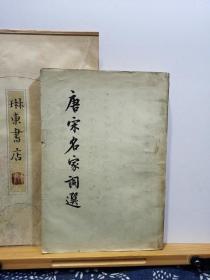 唐宋名家詞選
琳東書店